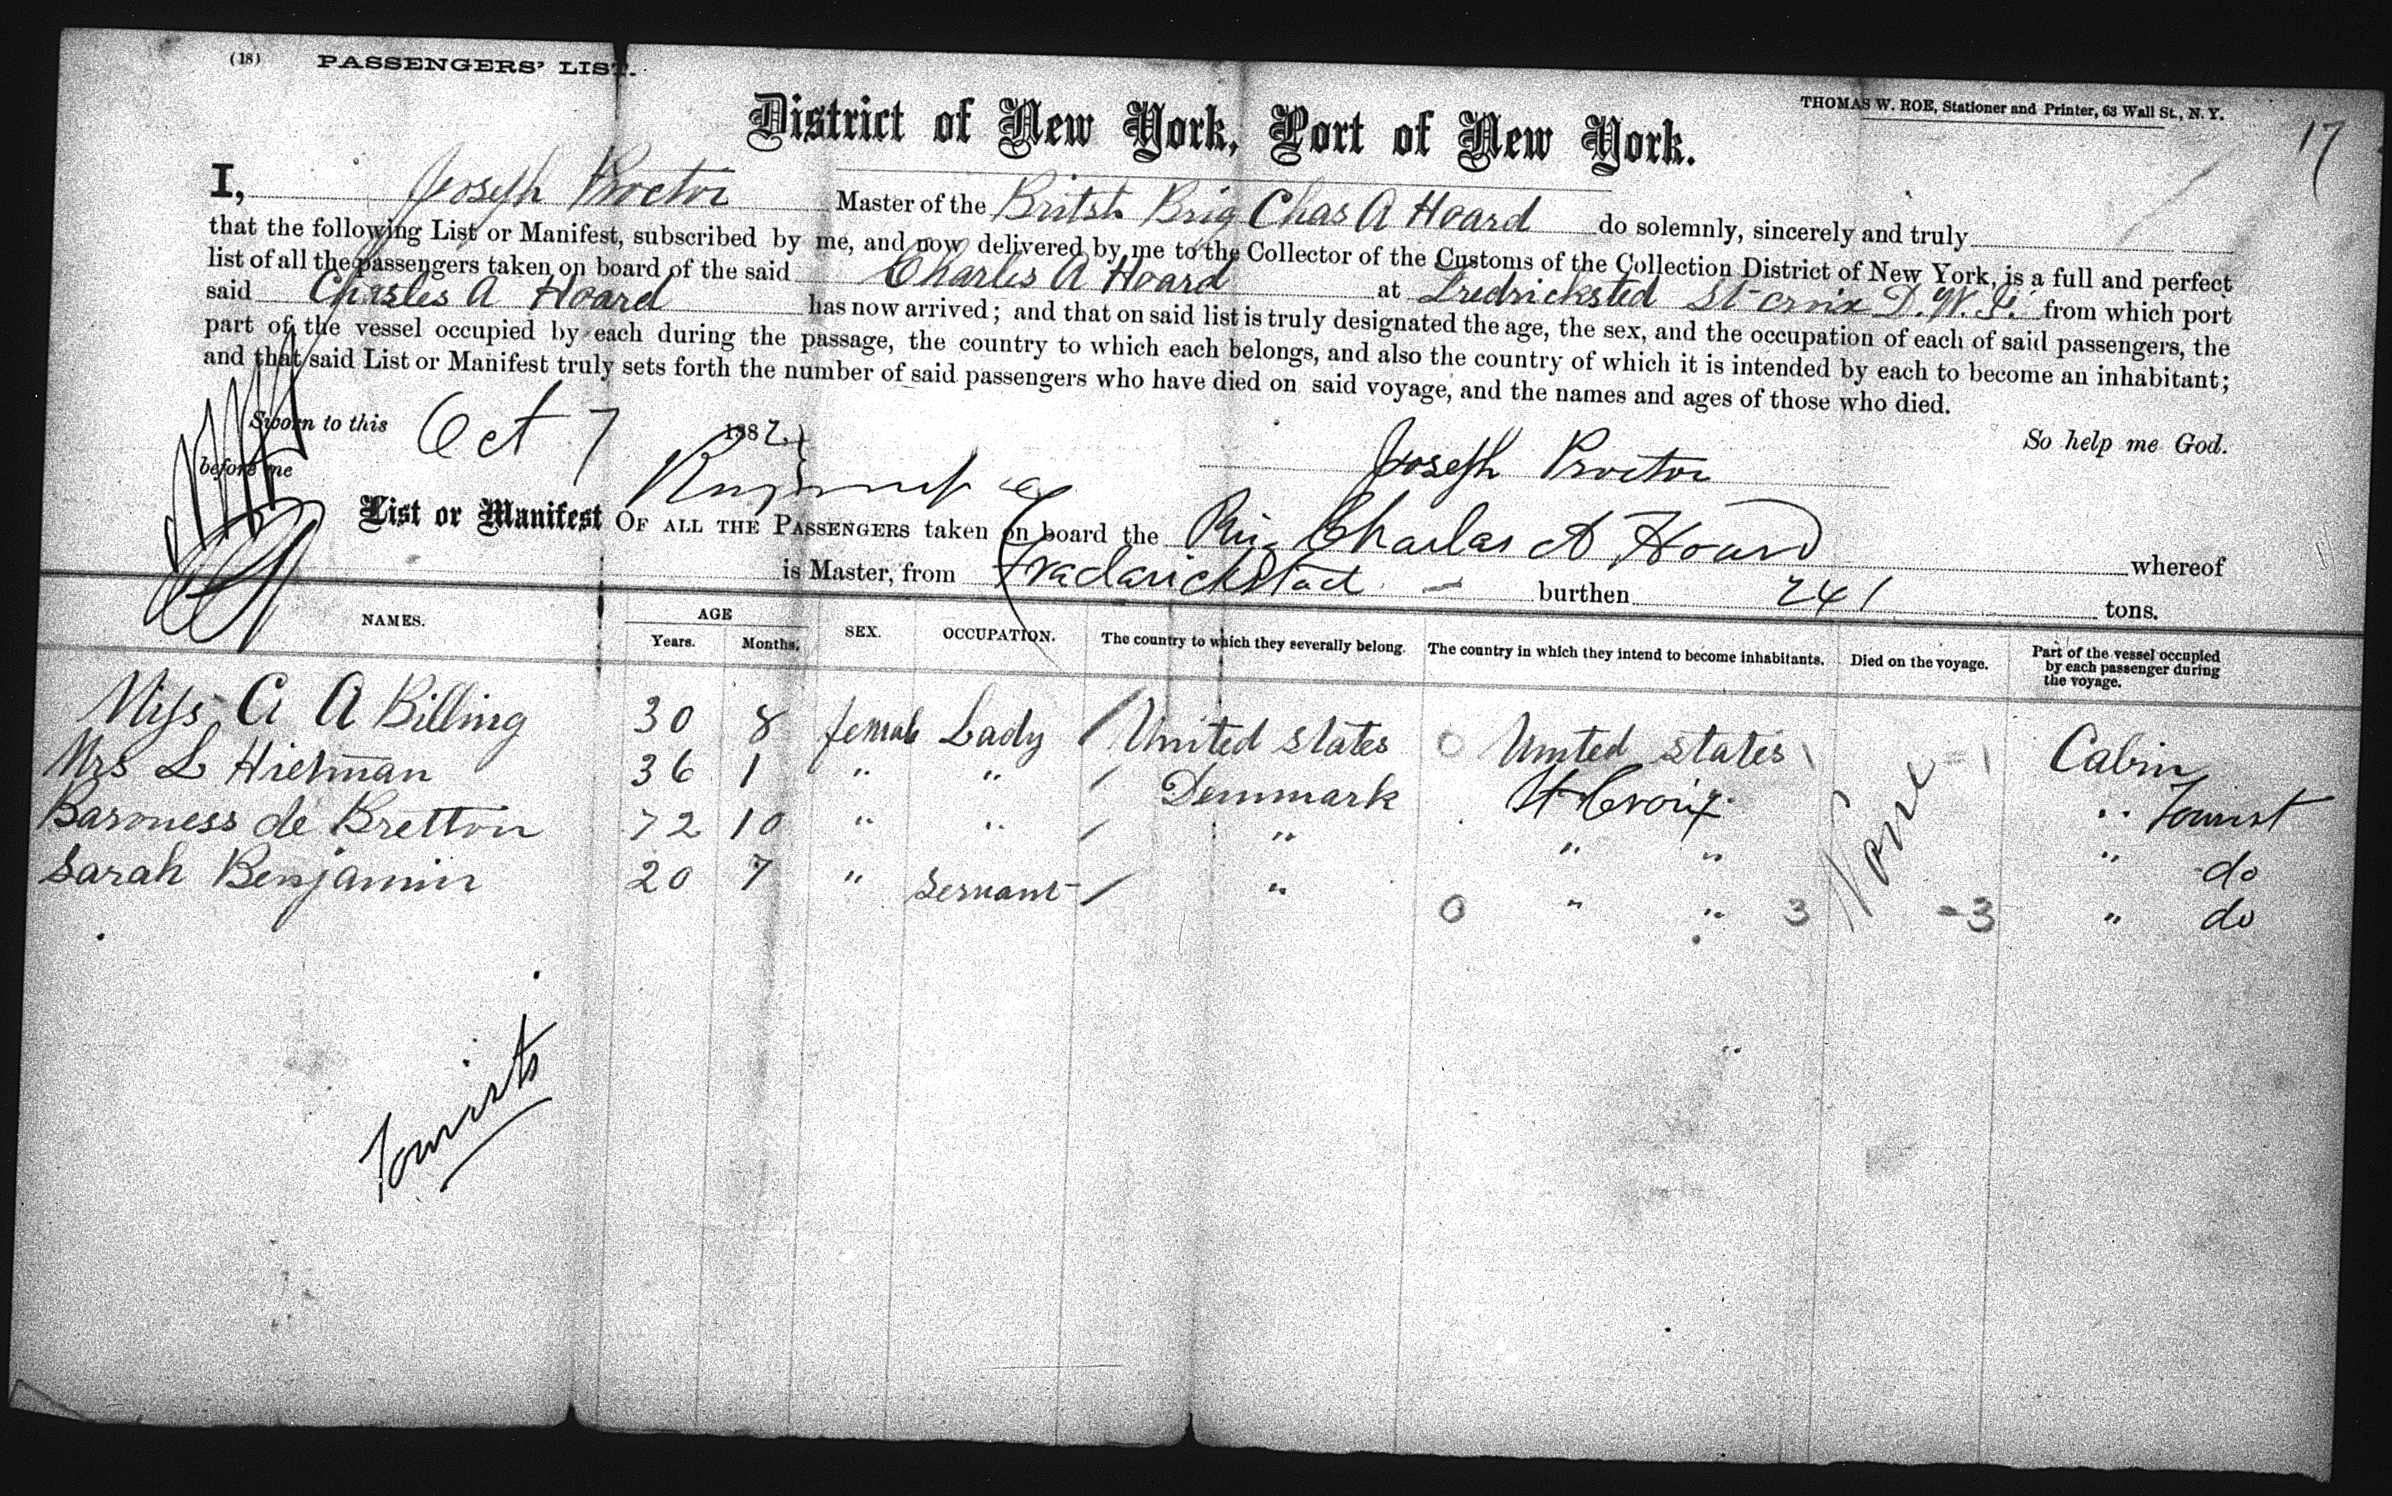 (18) PASSENGERS' LIST.
THOMAS W. ROE, Stationer and Printer, 63 Wall St., N. Y.
17
District of New York, Port of New York.
I, Joseph Proctor Master of the British Brig Chas A Hoard do solemnly, sincerely and truly
that the following List or Manifest, subscribed by me, and now delivered by me to the Collector of the Customs of the Collection District of New York, is a full and perfect
list of all the passengers taken on board of the said Charles A Hoard at Fredricksted St Croix D. W. I. from which port
said Charles A Hoard has now arrived; and that on said list is truly designated the age, the sex, and the occupation of each of said passengers, the
part of the vessel occupied by each during the passage, the country to which each belongs, and also the country of which it is intended by each to become an inhabitant;
and that said List or Manifest truly sets forth the number of said passengers who have died on said voyage, and the names and ages of those who died.
So help me God.
Sworn to this Oct 7 1882
before me
Joseph Proctor
List or Manifest OF ALL THE PASSENGERS taken on board the Brig Charles A Hoard whereof
is Master, from Frederickstad burthen 241 tons.
NAMES. AGE Years. Months. SEX. OCCUPATION. The country to which they severally belong. The country in which they intend to become inhabitants. Died on the voyage. Part of the vessel occupied by each passenger during the voyage.
Miss C A Billing 30 8 female Lady / United States 0 United States 1 - 1 Cabin
Mrs L Hielman 36 1 " " / Denmark St Croix " Tourist
Baroness de Bretton 72 10 " " / " " " " do
Sarah Benjamin 20 7 " Servant / " 0 " " 3 - 3 " do
None
Tourists